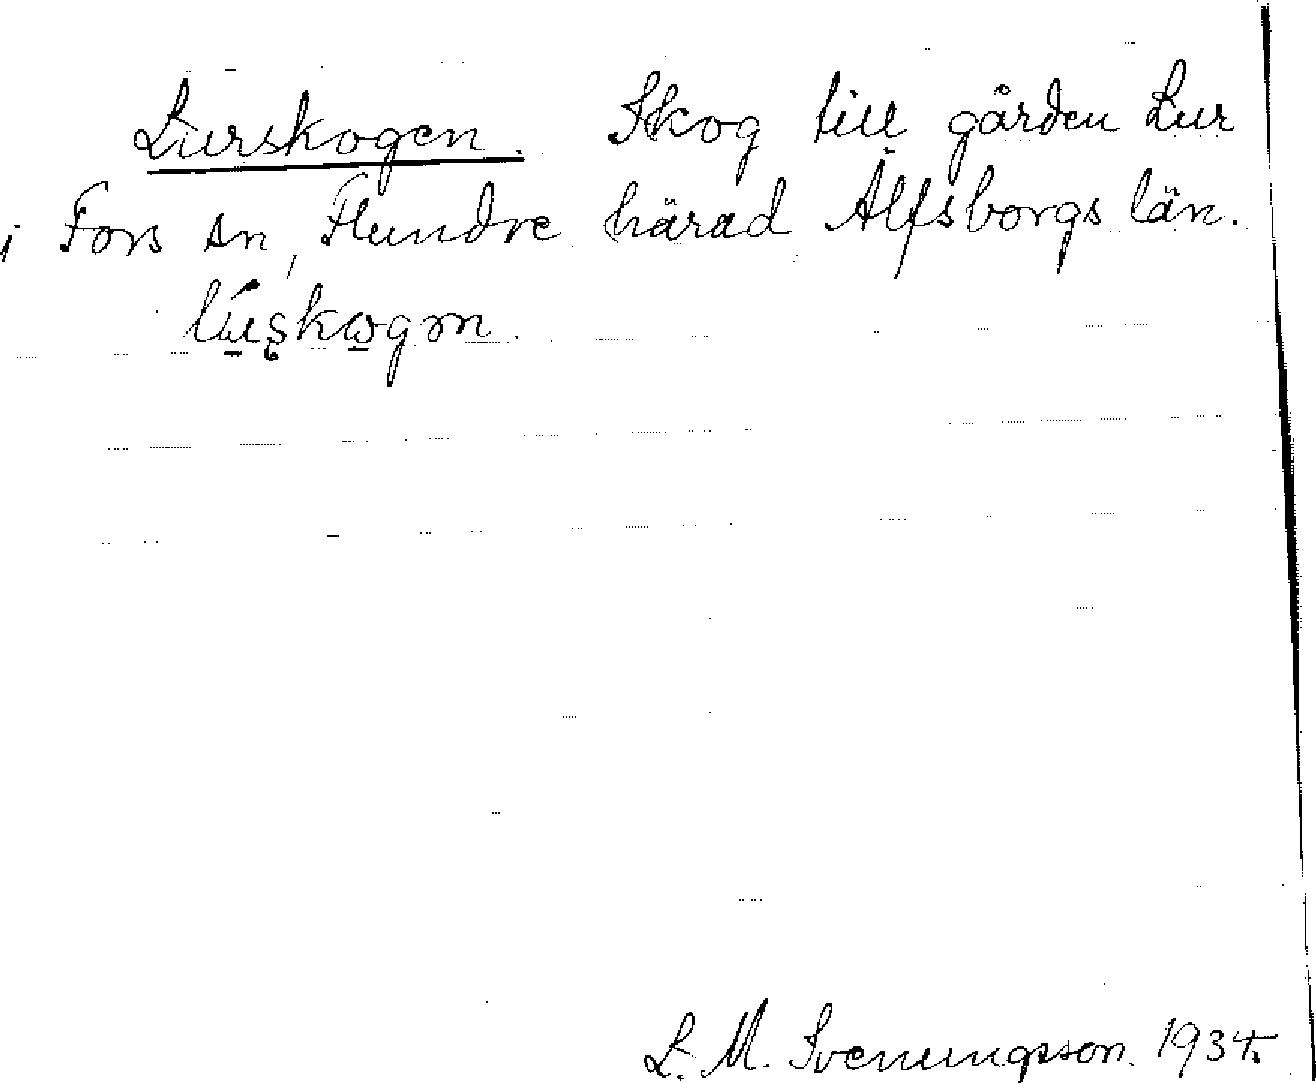 Lurskogen. Skog till gården Lur
i Fors sn, Flundre härad Älfsborgs län.
lúʂkogən.
L. M. Svenungsson. 1934.